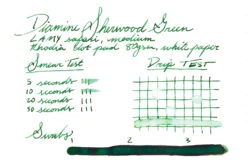 Diamine Sherwood Green
LAMY safari, medium
Rhodia dot pad 80g, white paper
Smear Test
Drip TEST
5 seconds
10 seconds
20 seconds
30 seconds
Swabs
2 3